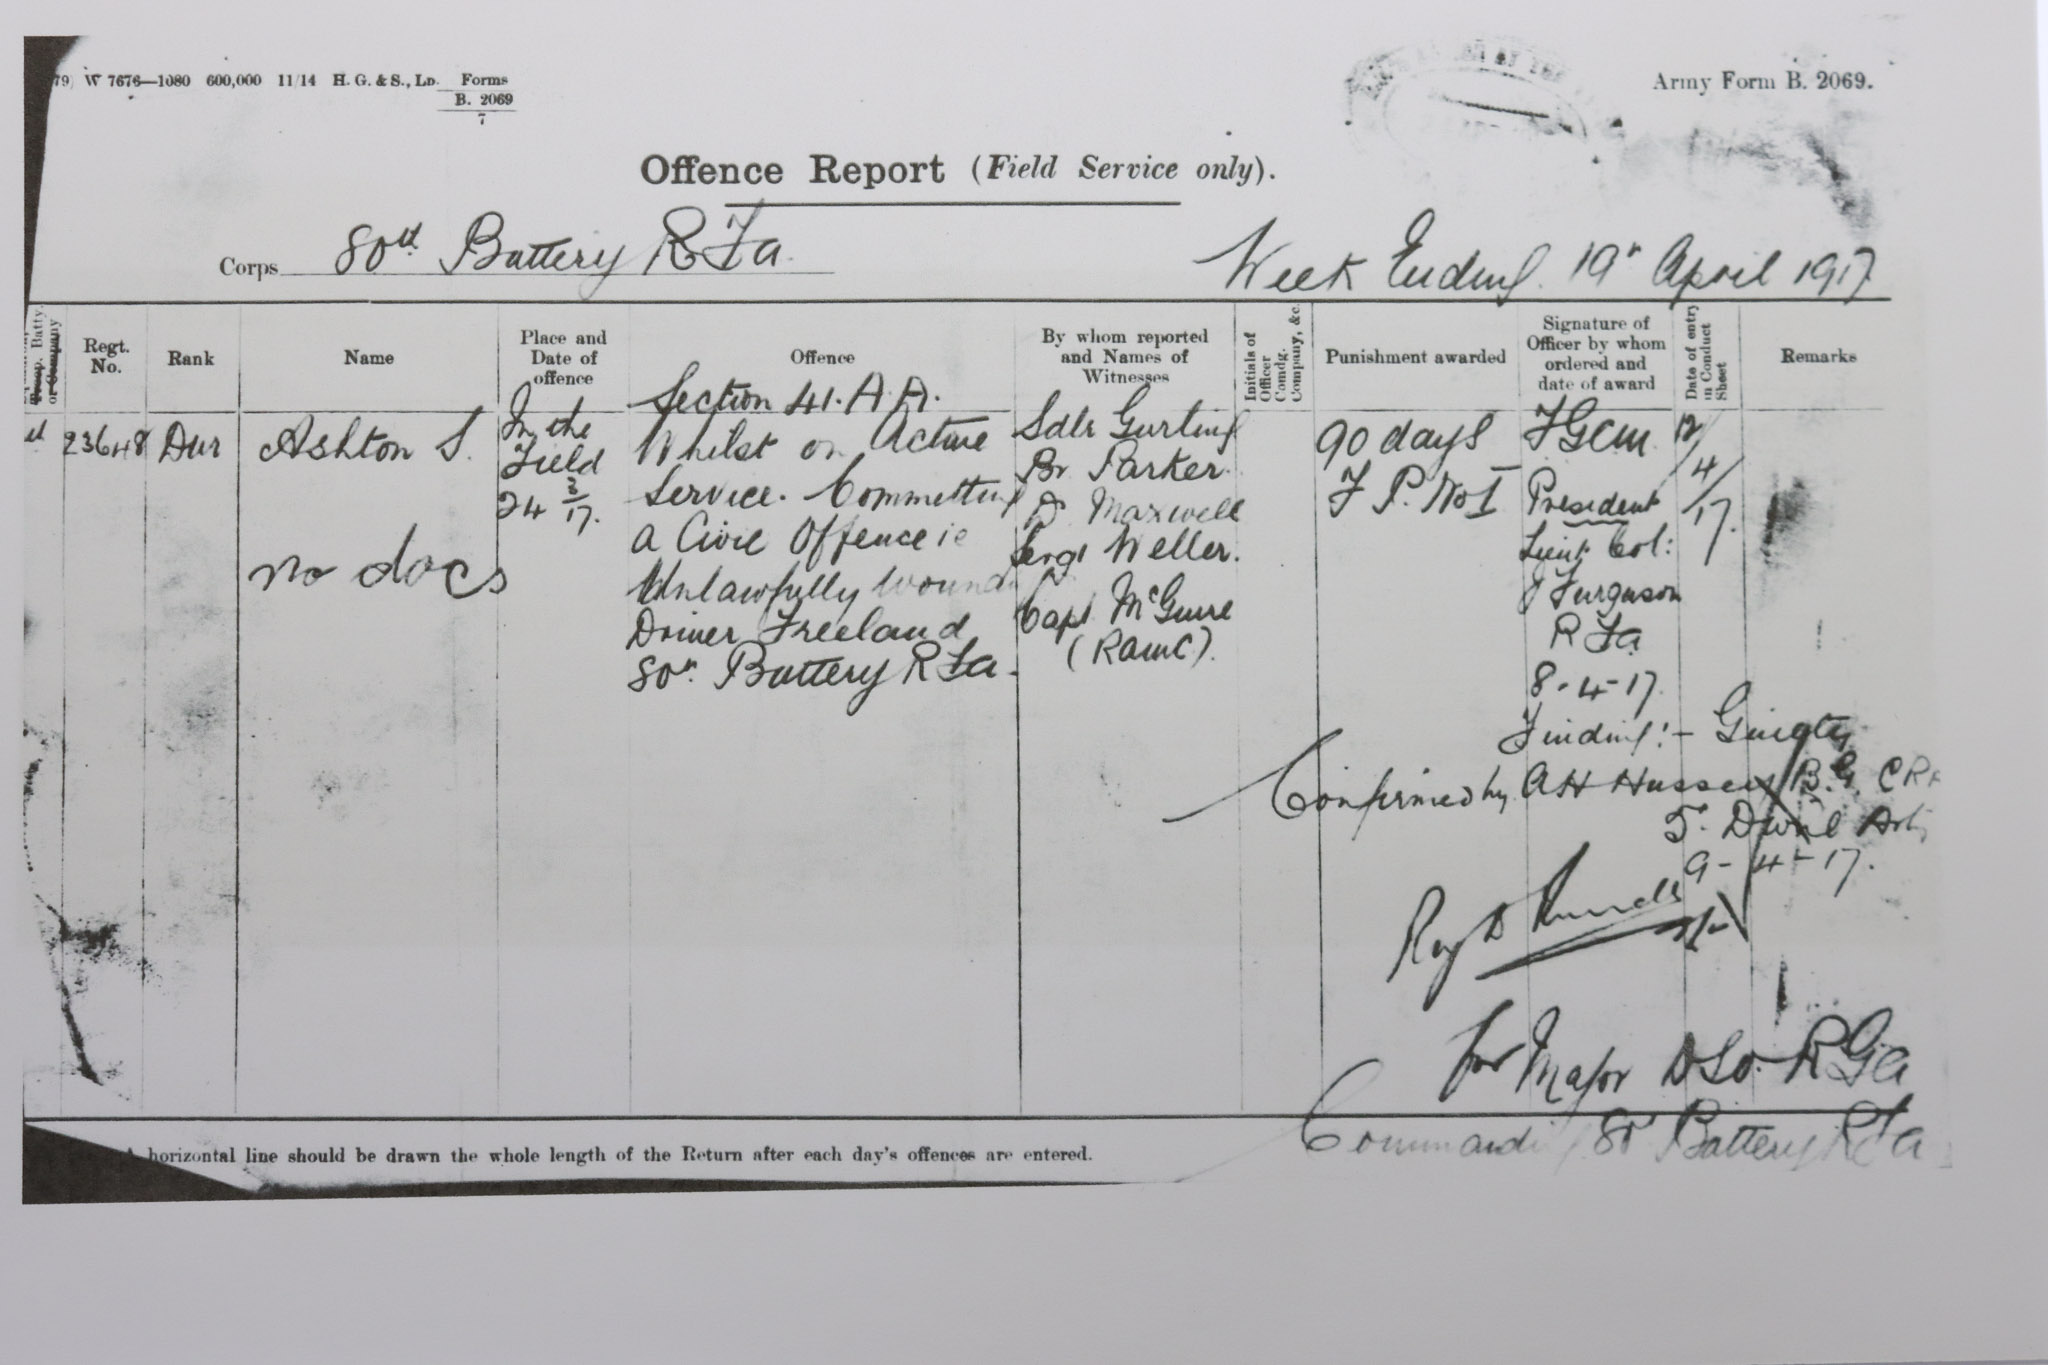 79) W 7676—1080 600,000 11/14 H. G. & S., Ld. Forms
B. 2069
7
Army Form B. 2069.
Offence Report (Field Service only).
Corps 80th Battery R Fa.
Week Ending. 19th April 1917
Troop, Batty. or Company
Regt. No.
Rank
Name
Place and Date of offence
Offence
By whom reported and Names of Witnesses
Initials of Officer Comdg. Company, &c.
Punishment awarded
Signature of Officer by whom ordered and date of award
Date of entry in Conduct Sheet
Remarks
23648
Dvr
Ashton S.
no docs
In the
Field
24 3/17.
Section 41. A.A.
Whilst on Active
Service. Committing
a Civil Offence ie
Unlawfully wound
Driver Freeland
80th Battery R Fa.
Sdlr Gurling
Br Parker.
D Maxwell
Sergt Weller.
Capt McGuire
(RAMC).
90 days
F P. No I
FGCM.
President
Lieut Col:
J Ferguson
R Fa
8-4-17.
12/4/17.
Finding:- Guilty
Confirmed by AH Hussey B.G. CRA
5. Divnl Arty
9-4-17.
Roy D
for Major DSO. RGa
Commanding 80th Battery RFa
A horizontal line should be drawn the whole length of the Return after each day's offences are entered.